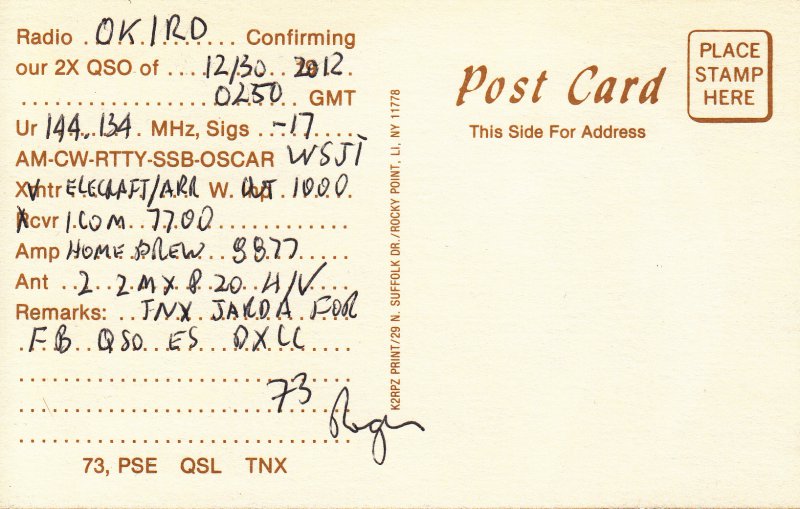 Radio OK1RD Confirming
our 2X QSO of 12/30 2012
0250 GMT
Ur 144.134 MHz, Sigs -17
AM-CW-RTTY-SSB-OSCAR WSJT
Xmtr ELECRAFT/ARR W. OUT 1000
Rcvr ICOM 7700
Amp HOME BREW 8877
Ant 2 2MX8 20 H/V
Remarks: TNX JARDA FOR
FB QSO ES DXCC
73
Roger
73, PSE QSL TNX
K2RPZ PRINT/29 N. SUFFOLK DR./ROCKY POINT, LI, NY 11778
Post Card
This Side For Address
PLACE
STAMP
HERE